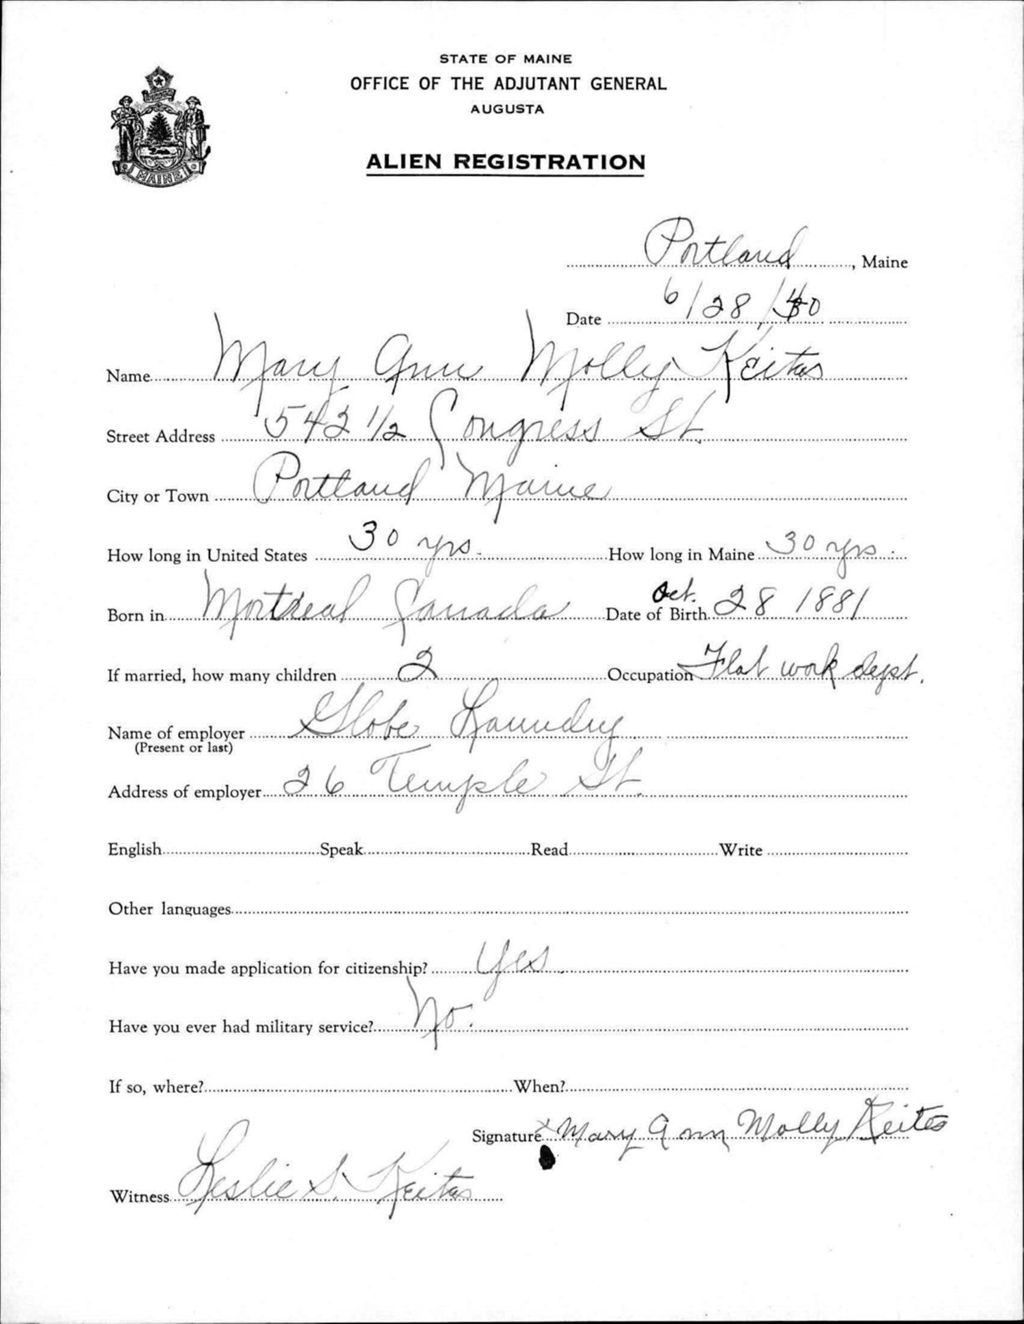 STATE OF MAINE
OFFICE OF THE ADJUTANT GENERAL
AUGUSTA
ALIEN REGISTRATION
MAINE
Portland, Maine
Date 6/28/40
Name Mary Ann Molly Keites
Street Address 542 1/2 Congress St.
City or Town Portland Maine
How long in United States 30 yrs. How long in Maine 30 yrs.
Born in Montreal Canada Date of Birth Oct. 28 1881
If married, how many children 2 Occupation Flat work dept.
Name of employer Globe Laundry
(Present or last)
Address of employer 26 Temple St.
English Speak Read Write
Other languages
Have you made application for citizenship? Yes.
Have you ever had military service? No.
If so, where? When?
Signature x Mary Ann Molly Keites
Witness Leslie S. Keites